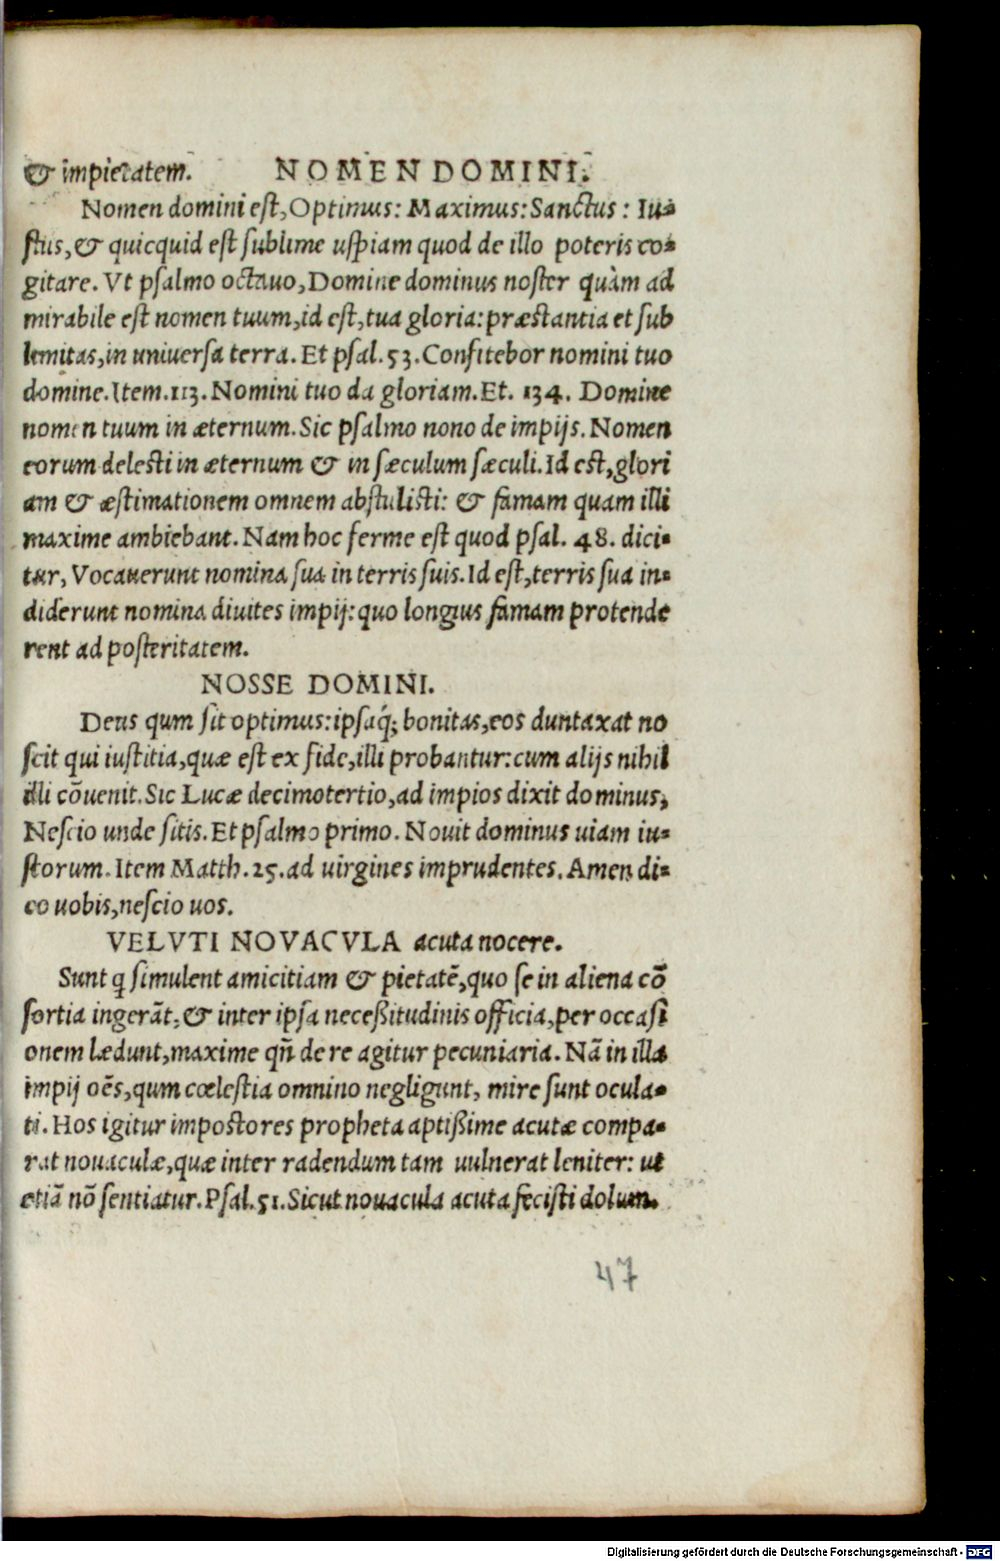 & impietatem. NOMEN DOMINI.
Nomen domini est, Optimus: Maximus: Sanctus: Iu-
stus, & quicquid est sublime uspiam quod de illo poteris co-
gitare. Vt psalmo octauo, Domine dominus noster quàm ad
mirabile est nomen tuum, id est, tua gloria: præstantia et sub
limitas, in uniuersa terra. Et psal. 53. Confitebor nomini tuo
domine. Item. 113. Nomini tuo da gloriam. Et. 134. Domine
nomen tuum in æternum. Sic psalmo nono de impijs. Nomen
eorum delesti in æternum & in sæculum sæculi. Id est, glori
am & æstimationem omnem abstulisti: & famam quam illi
maxime ambiebant. Nam hoc ferme est quod psal. 48. dici-
tur, Vocauerunt nomina sua in terris suis. Id est, terris sua in-
diderunt nomina diuites impij: quo longius famam protende
rent ad posteritatem.
NOSSE DOMINI.
Deus qum sit optimus: ipsaq; bonitas, eos duntaxat no
scit qui iustitia, quæ est ex fide, illi probantur: cum alijs nihil
illi cōuenit. Sic Lucæ decimotertio, ad impios dixit dominus,
Nescio unde sitis. Et psalmo primo. Nouit dominus uiam iu-
storum. Item Matth. 25. ad uirgines imprudentes. Amen di-
co uobis, nescio uos.
VELVTI NOVACVLA acuta nocere.
Sunt q simulent amicitiam & pietatē, quo se in aliena cō
sortia ingerāt, & inter ipsa neceßitudinis officia, per occasi
onem lædunt, maxime qn̄ de re agitur pecuniaria. Nā in illa
impij oēs, qum cœlestia omnino negligunt, mire sunt ocula-
ti. Hos igitur impostores propheta aptißime acutæ compa-
rat nouaculæ, quæ inter radendum tam uulnerat leniter: ut
etiā nō sentiatur. Psal. 51. Sicut nouacula acuta fecisti dolum.
47
Digitalisierung gefördert durch die Deutsche Forschungsgemeinschaft - DFG